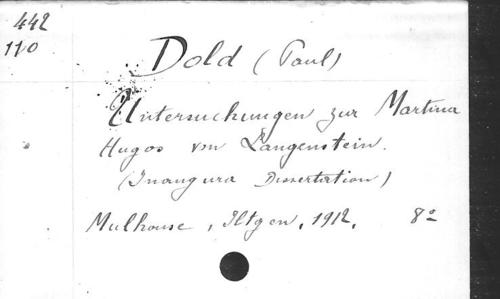 442
110
Dold (Paul)
Untersuchungen zur Martina
Hugos von Langenstein.
(Inaugura Dissertation)
Mulhouse, Iltgen, 1912. 8º